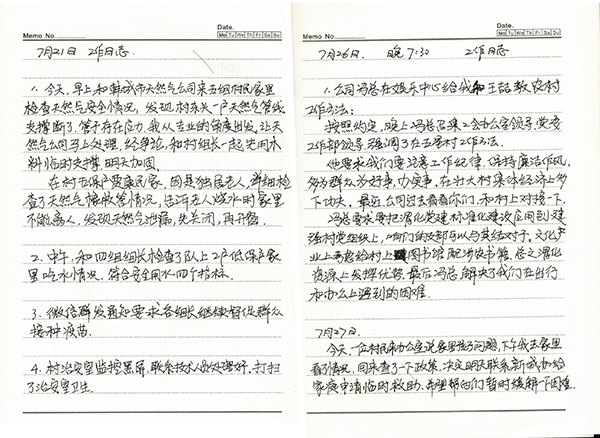 Memo No.
Date.
Mo Tu We Th Fr Sa Su
7月21日 工作日志
1. 今天,早上和韩城市天然气公司来五组村民家里
检查天然气安全情况,发现村东头一户天然气管线
支撑断了,管子存在应力,我从专业的角度出发,让天
然气公司马上处理,经争论,和村组长一起先用木
料临时支撑,明天加固。
在村五保户贾康民家,因是独居老人,详细检
查了天然气橡胶管情况,告诉老人烧水时家里
不能离人,发现天然气泄漏,先关闭,再开窗。
2. 中午,和四组组长检查了队上2户低保户家
里吃水情况,符合安全用水四个指标。
3. 微信群发通知要求各组长继续督促群众
接种疫苗。
4. 村治安室监控黑屏,联系技术人员处理好。打扫
了治安室卫生。
Memo No.
Date.
Mo Tu We Th Fr Sa Su
7月26日 晚7:30 工作日志
1. 公司冯总在娱乐中心给我和王喆教农村
工作方法:
按照约定,晚上冯总召集了会办公室领导,党委
工作部领导强调了在五星村工作方法。
他要求我们要注意工作纪律,保持廉洁作风,
多为群众办好事,办实事,在壮大村集体经济上多
下功夫。最近公司过去看看你们,和村上对接一下。
冯总要求要把渭化党建标准化建设应用到建
强村党组织上,咱们的支部可以与其结对子。文化产
业上考虑给村上图书馆配送些书籍,总之渭化
资源上发挥优势。最后冯总解决了我们在出行
和办公上遇到的困难。
7月27日。
今天,一位村民来办公室说家里孩子问题,下午我去家里
看了情况,回来查了一下政策,决定明天联系新城办给
家庭申请临时救助,希望帮他们暂时缓解一下困难。